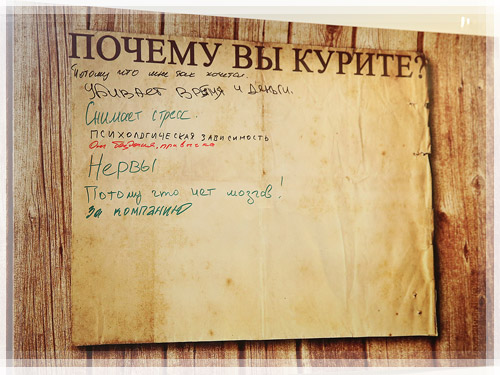 ПОЧЕМУ ВЫ КУРИТЕ?
Потому что мне так хочется.
УБИВАЕТ ВРЕМЯ и Деньги.
Снимает стресс.
ПСИХОЛОГИЧЕСКАЯ ЗАВИСИМОСТЬ
От безделия, привычка
НЕРВЫ
Потому что нет мозгов!
За компанию